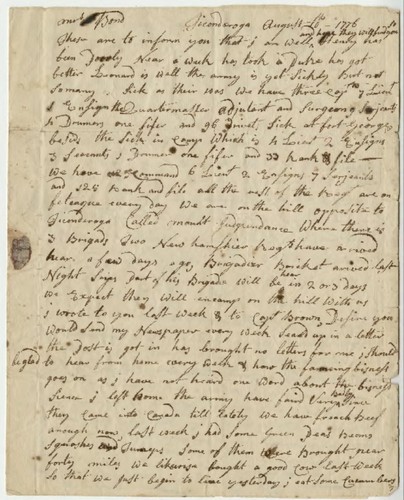 Bond Ticonderoga August 1776
and hope they will find you so
These are to inform you that i am Well Henry has
been Poorly Near a week has took a Puke has got
better Leonard is well the army is yet Sickly But not
So many Sick as their was We have three Capt 7 Lieut
Ensign the Quartermaster Adjutant and Surgeon Serjents
4 Drumers one fifer and 96 Privet Sick at fort George
besids the Sick in Camp Which is 4 Lieut 2 Ensigns
3 Serjents 1 Drumer one fifer and 33 Rank & file
We have Command 6 Lieut 2 Ensigns 7 Serjents
and 128 Rank and file all the rest of the Reg are on
feteague every day We are on the hill opposite to
Ticonderoga Called mount Independance Where there is
3 Brigads Two New hampshier Reg have arived
hear a few days ago Brigadier Bricket arived last
Night Says Part of his Brigade will be in hear 2 or 3 days
We Expect they Will encamp on the hill With us
i wrote to you last Week & to Capt Brown Desire you
Would Send my Newspaper every Week Seald up in a letter
the Post is got in has brought no letters for me i Should
be glad to hear from home every Week & how the farming bisness
goes on as i have not heard one Word about the bisness
Sience i left home the army have faird Very Poorly Since
they came into Canada till lately We have french Beef
anough now last Week i had Some Green Peas Beans
Squashes and Turneps Some of them Were Brought near
forty miles We likewise bought a good Cow last Week
So that We just begin to live yesterday i eat Some Cucumbers